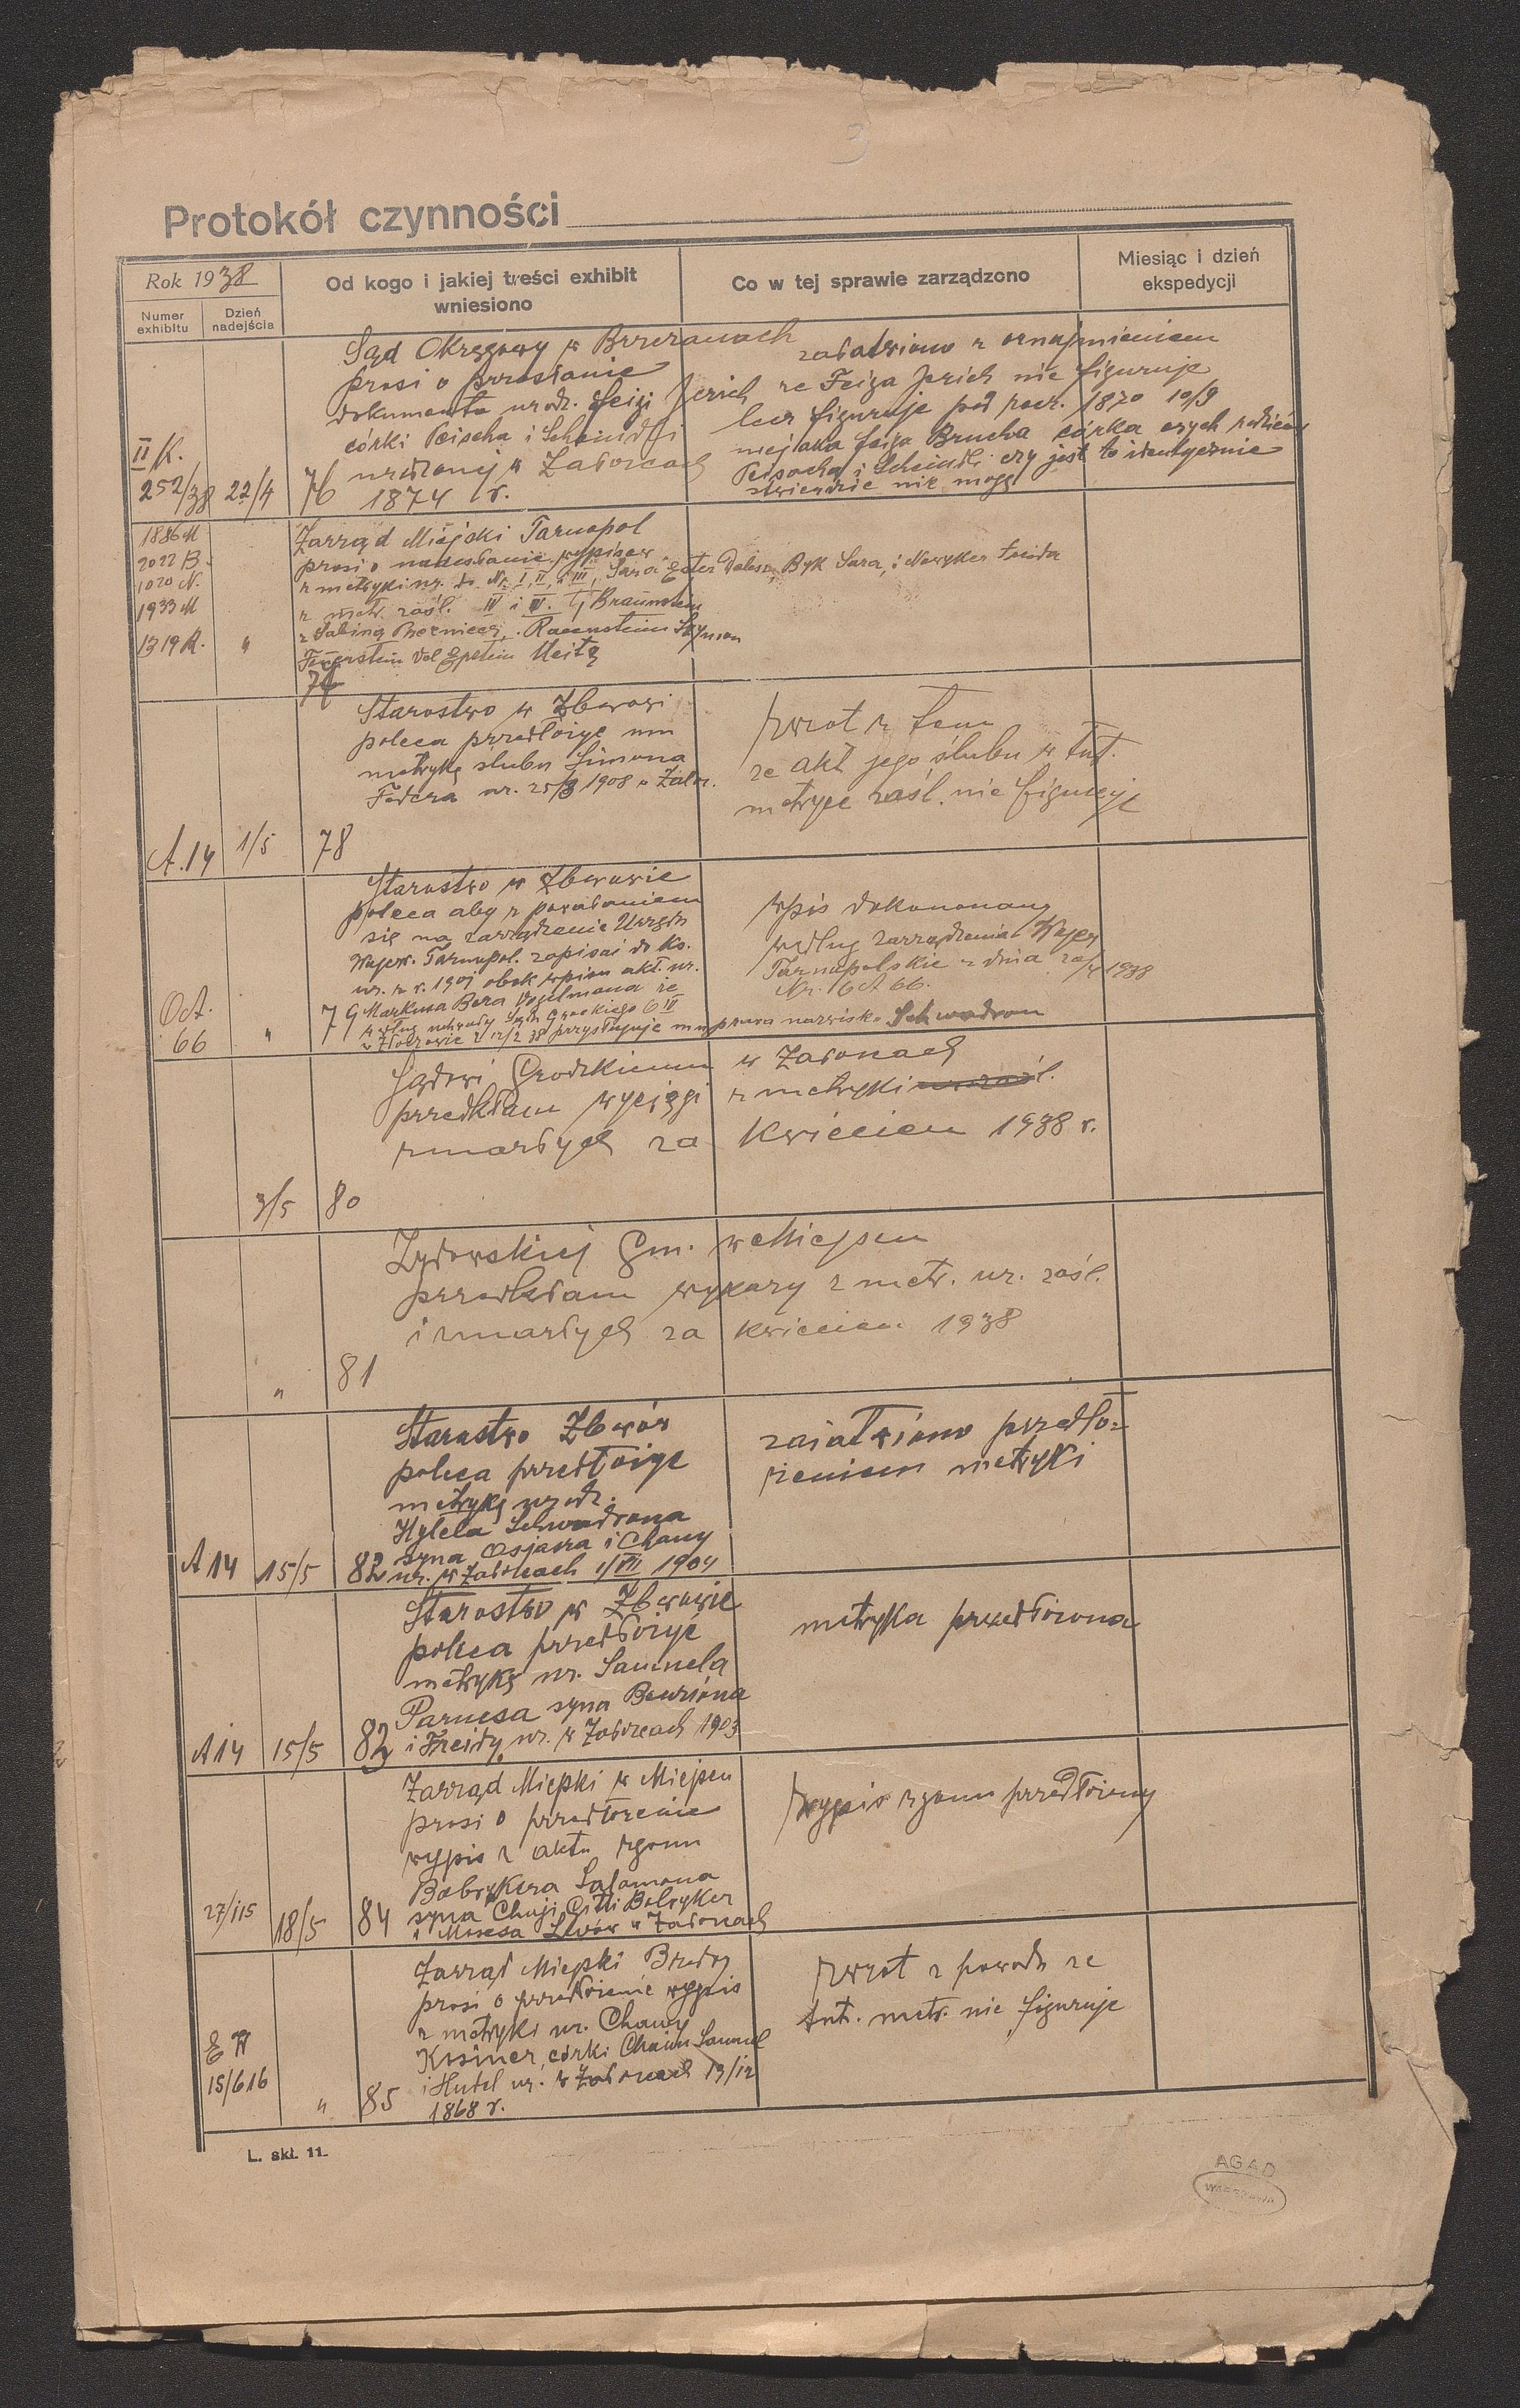 Protokół czynności
Rok 1938
Numer exhibitu
Dzień nadejścia
Od kogo i jakiej treści exhibit wniesiono
Co w tej sprawie zarządzono
Miesiąc i dzień ekspedycji
II K.
252/38 22/4 76
Sąd Okręgowy w Brzezanach
prosi o przesłanie
dokumentu urodz. Feigi Jerich
córki Peischa i Scheindli
urodzonej w Załozcach
1874 r.
załatwiono z oznajmieniem
ze Feiga Jerich nie figuruje
lecz figuruje pod poz. 1870 10/9
niejaka Feiga Brucha córka
Peisacha i Scheindli czy jest to identycznie
stwierdzic nie mogę
1886 M
2022 B.
1020 N.
1933 M
1319 R. "
Zarząd Miejski Tarnopol
prosi o nadesłanie wypisow
z metryki ur. do Nr. I, II, i III, Sara Ester Byk Sara, i
z metr. zaśl. IV i V. tj Braunstein
z Sabiną
A.14 1/5 78
Starostwo w Zborowi
poleca przedłożyc mu
metrykę slubu Simona
Federa ur. 25/8 1908 w Załoz.
zwrot z tem
ze akt jego slubu w tut.
metryce zaśl. nie figuruje
Oct.
66 " 79
Starostwo w Zborowie
poleca aby z powołaniem
się na zarządzenie Urzędu
Wojew. Tarnopol. zapisać do ks.
ur. z r. 1901 obok wpisu akt. ur.
Markusa Bera Vogelmana ze
w Złoczowie z 12/2 38 przysługuje mu prawo nazwisko Schwadron
wpis dokononany
według zarządzenia Wojew
Tarnopolskie z dnia 20/4 1938
Nr. Oct 66.
3/5 80
Sądowi Grodzkiemu w Załozcach
przedkłam wyciągi z metryki
zmarłych za kwiecien 1938 r.
" 81
Zydowskiej Gm. w Miejscu
przedkłam wykazy z metr. ur. zaśl.
i zmarłych za kwiecien 1938
A 14 15/5 82
Starostwo Zborów
poleca przedłożyc
metrykę urodz.
Hylela Schwadrona
syna Osjasza i Chany
ur. w Załozcach 1/VII 1904
załatwiono przedło=
zeniem metryki
A 14 15/5 83
Starostwo w Zborowie
poleca przedłożyć
metrykę ur. Samuela
Parnesa syna Benziona
i Freidy ur. w Załozcach 1903
metryka przedłozona
27/115 18/5 84
Zarząd Miejski w Miejscu
prosi o przedłozenie
wypis z aktu zgonu
Bobrykera Salomona
syna Chaji Gitli Bobryker
i Mosesa w Załozcach
wypis zgonu przedłożony
15/616 " 85
Zarząd Miejski Brody
prosi o przedłozenie wypis
z metryki ur. Chawy
Kosiner, córki Chaim Samuel
i Hudel ur. w Załozcach 13/12
1868 r.
zwrot z powodu ze
tut. metr. nie figuruje
L. skł. 11.
AGAD
WARSZAWA